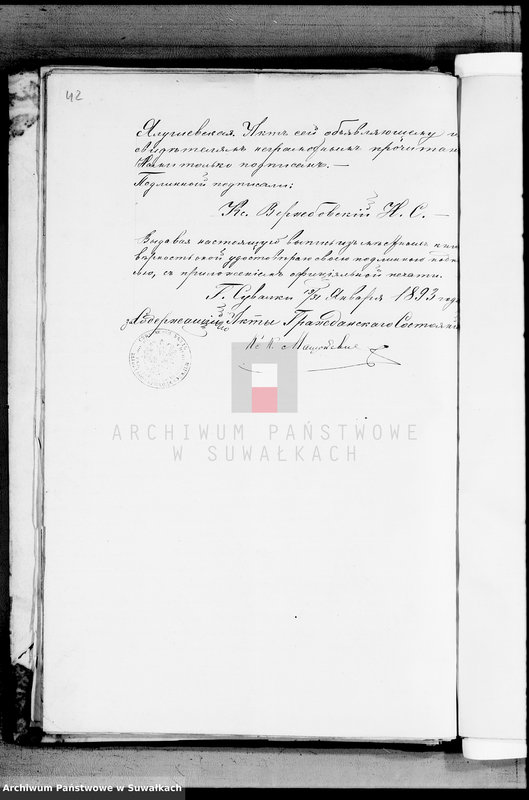 42
Актъ сей объявляющему и
свидѣтелямъ неграмотнымъ прочитан
Нами только подписанъ. —
Подлинной подписали:
Кс. Вержбовскій Н. С. —
Выдавая настоящую выпись изъ книг
вѣрность оной удостовѣряю своею подлинною подпи
сью, съ приложеніемъ оффиціяльной печати.
Г. Сувалки 19/31 Января 1893 года
Содержащій Акты Гражданскаго Состоянія
ARCHIWUM PAŃSTWOWE
W SUWAŁKACH
Archiwum Państwowe w Suwałkach